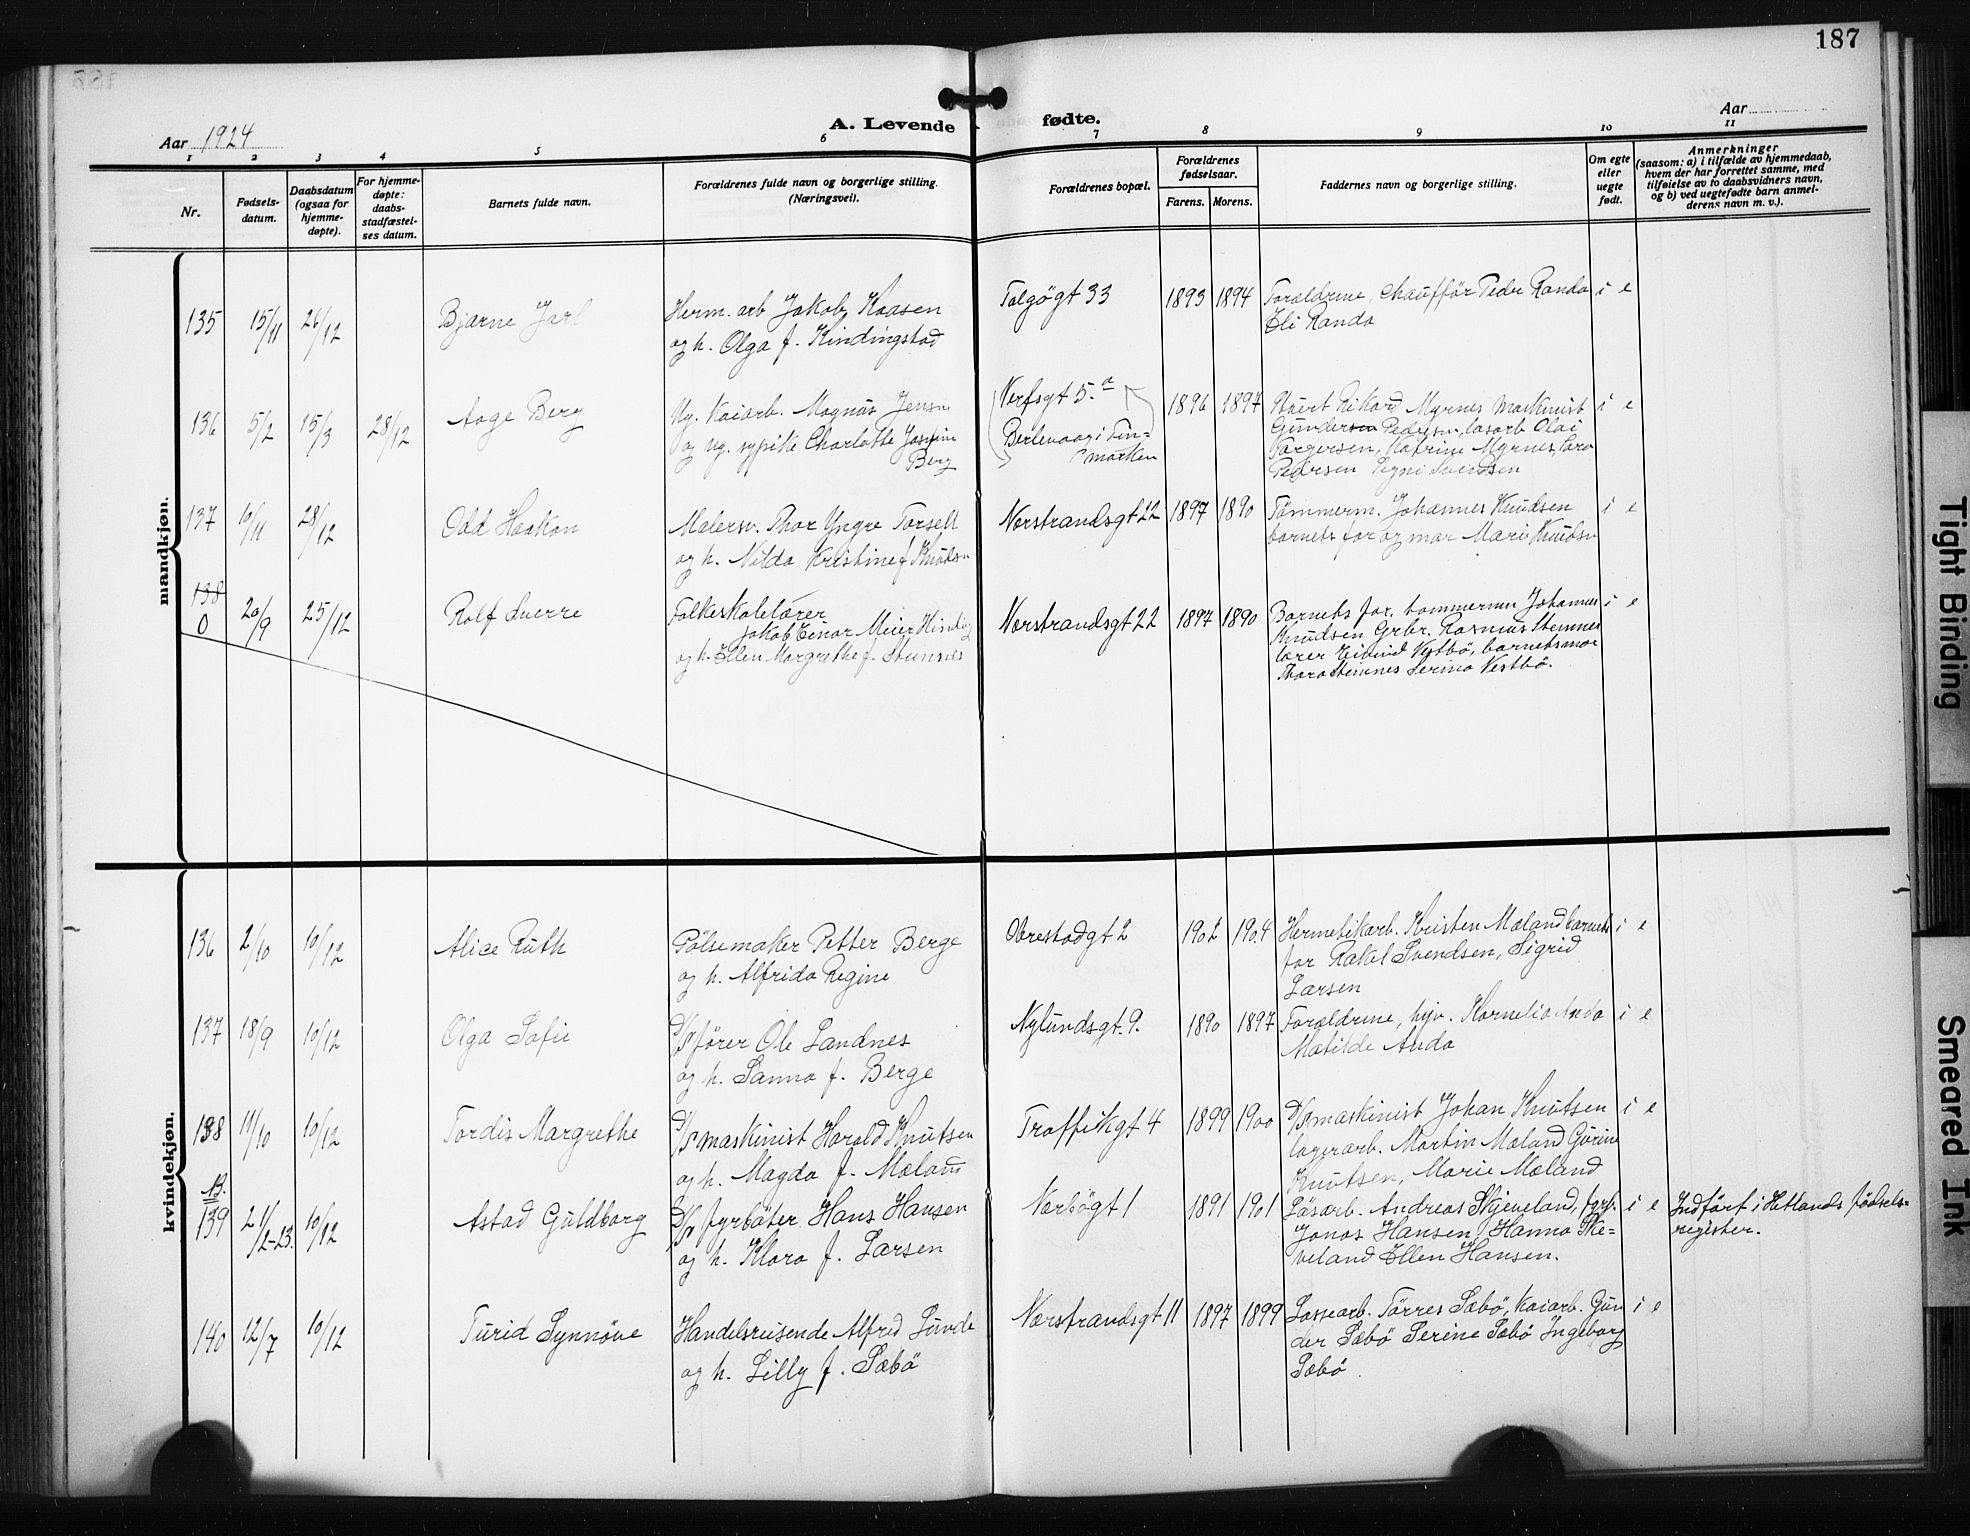 187
Aar 1924
A. Levende fødte.
Aar
1 2 3 4 5 6 7 8 9 10 11
Nr.
Fødsels-
datum.
Daabsdatum
(ogsaa for
hjemme-
døpte).
For hjemme-
døpte:
daabs-
stadfæstel-
ses datum.
Barnets fulde navn.
Forældrenes fulde navn og borgerlige stilling.
(Næringsvei).
Forældrenes bopæl.
Forældrenes
fødselsaar.
Farens. Morens.
Faddernes navn og borgerlige stilling.
Om egte
eller
uegte
født.
Anmerkninger
(saasom: a) i tilfælde av hjemmedaab,
hvem der har forrettet samme, med
tilføielse av to daabsvidners navn,
og b) ved uegtefødte barn anmel-
derens navn m. v.).
mandkjøn.
135 15/11 26/12 Bjarne Jarl
Herm. arb Jakob Kaasen
og h. Olga f. Kindingstad
Talgögt 33 1893 1894
Forældrene, Chaufför Peder Randa
Eli Randa
i e
136 5/2 15/3 28/12 Aage Berg
Ug. Kaiarb. Magnus Jensen
og ug. sypike Charlotte Josefine
Berg
Verfsgt 5.a
Berlevaag i Fin=
marken
1896 1897
Rikard Myrnes Maskinist
Gundersen Pedersen, løsarb Olai
Torgersen, Katrine Myrnes, Lara
Pedersen Svendsen
i e
137 10/11 28/12 Odd Haakon
Malersv. Thor Yngve Torsell
og h. Nilda Kristine f Knudsen
Nerstrandsgt 22 1897 1890
Tömmerm. Johannes Knudsen
barnets far og mor Marie Knudsen
i e
138
0 20/9 25/12 Rolf Sverre
Folkeskolelærer
Jakob Einar Meier
og h. Ellen Margrethe f. Stemnes
Nerstrandsgt 22 1897 1890
Barnets far, tommermm Johannes
Knudsen Grbr. Rasmus Stemnes
lærer Eivind Vestbö, barnets mor
Thora Stemnes Serina Vestbö.
i e
kvindekjøn.
136 2/10 10/12 Alice Ruth
Pölsemaker Petter Berge
og h. Alfrida Regine
Obrestadgt 2 1902 1904
Hermetikarb. Kristen Mæland barnets
far Rakel Svendsen, Sigrid
Larsen
i e
137 18/9 10/12 Olga Sofie
D/S förer Ole Sandnes
og h. Sanna f. Berge
Nylundsgt. 9. 1890 1897
Forældrene, hyv. Kornelia Anda
Matilde Anda
i e
138 11/10 10/12 Tordis Margrethe
D/S maskinist Harald Knutsen
og h. Magda f. Mæland
Trafikgt 4 1899 1900
D/S maskinist Johan Knutsen
lagerarb. Martin Mæland Gurine
Knutsen, Marie Mæland
i e
13.
139 21/2-23. 10/12 Astad Guldborg
D/S fyrböter Hans Hansen
og h. Klara f. Larsen
Nærbögt 1 1891 1901
Lösarb. Andreas Skjeveland, fyrb.
Jonas Hansen, Hanna Skje=
veland Ellen Hansen.
i e
Indfört i Hetlands födsels-
register.
140 12/7 10/12 Turid Synnöve
Handelsreisende Alfred Lunde
og h. Lilly f. Sæbö
Nerstrandsgt 11 1897 1899
Lossearb. Törres Sæbö, Kaiarb. Gun
der Sæbö Serine Sæbö Ingeborg
Sæbö.
i e
Tight Binding
Smeared Ink